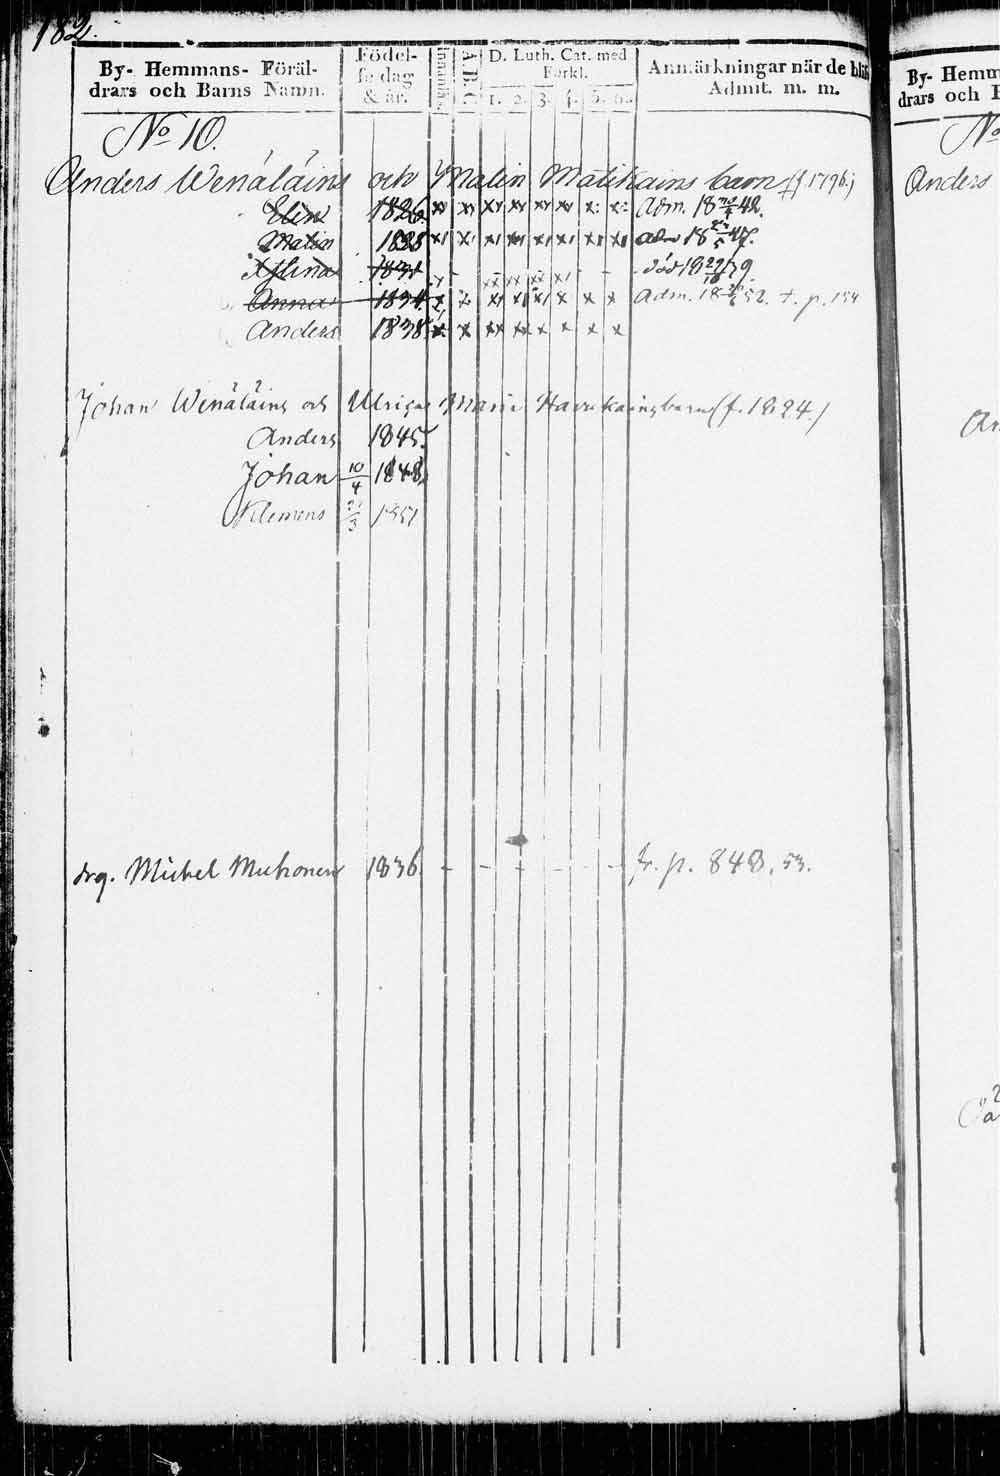 182.
By- Hemmans- Föräl-
drars och Barns Namn.
Födel-
se dag
& år.
Innanläs.
A B C
D. Luth. Cat. med
Förkl.
1. 2. 3. 4. 5. 6.
Anmärkningar när de blif
Admit. m. m.
No 10.
Anders Wenäläins och Malin Matikains barn (f. 1796.)
Elin 1826. Adm. 18 42.
Malin 1828 adm 18 47.
Helina 1831 död 18 29/10 79
Anna 1834. Adm. 18 52. t. p. 154
Anders 1838.
Johan Wenäläins och Ulrica Maria Havukains barn (f. 1824.)
Anders 1845.
Johan 10/4 1848.
Klemens 1851
drg. Michel Muhonen 1836. fr. p. 848. 53.
By- Hemm
drars och B
No
Anders
An